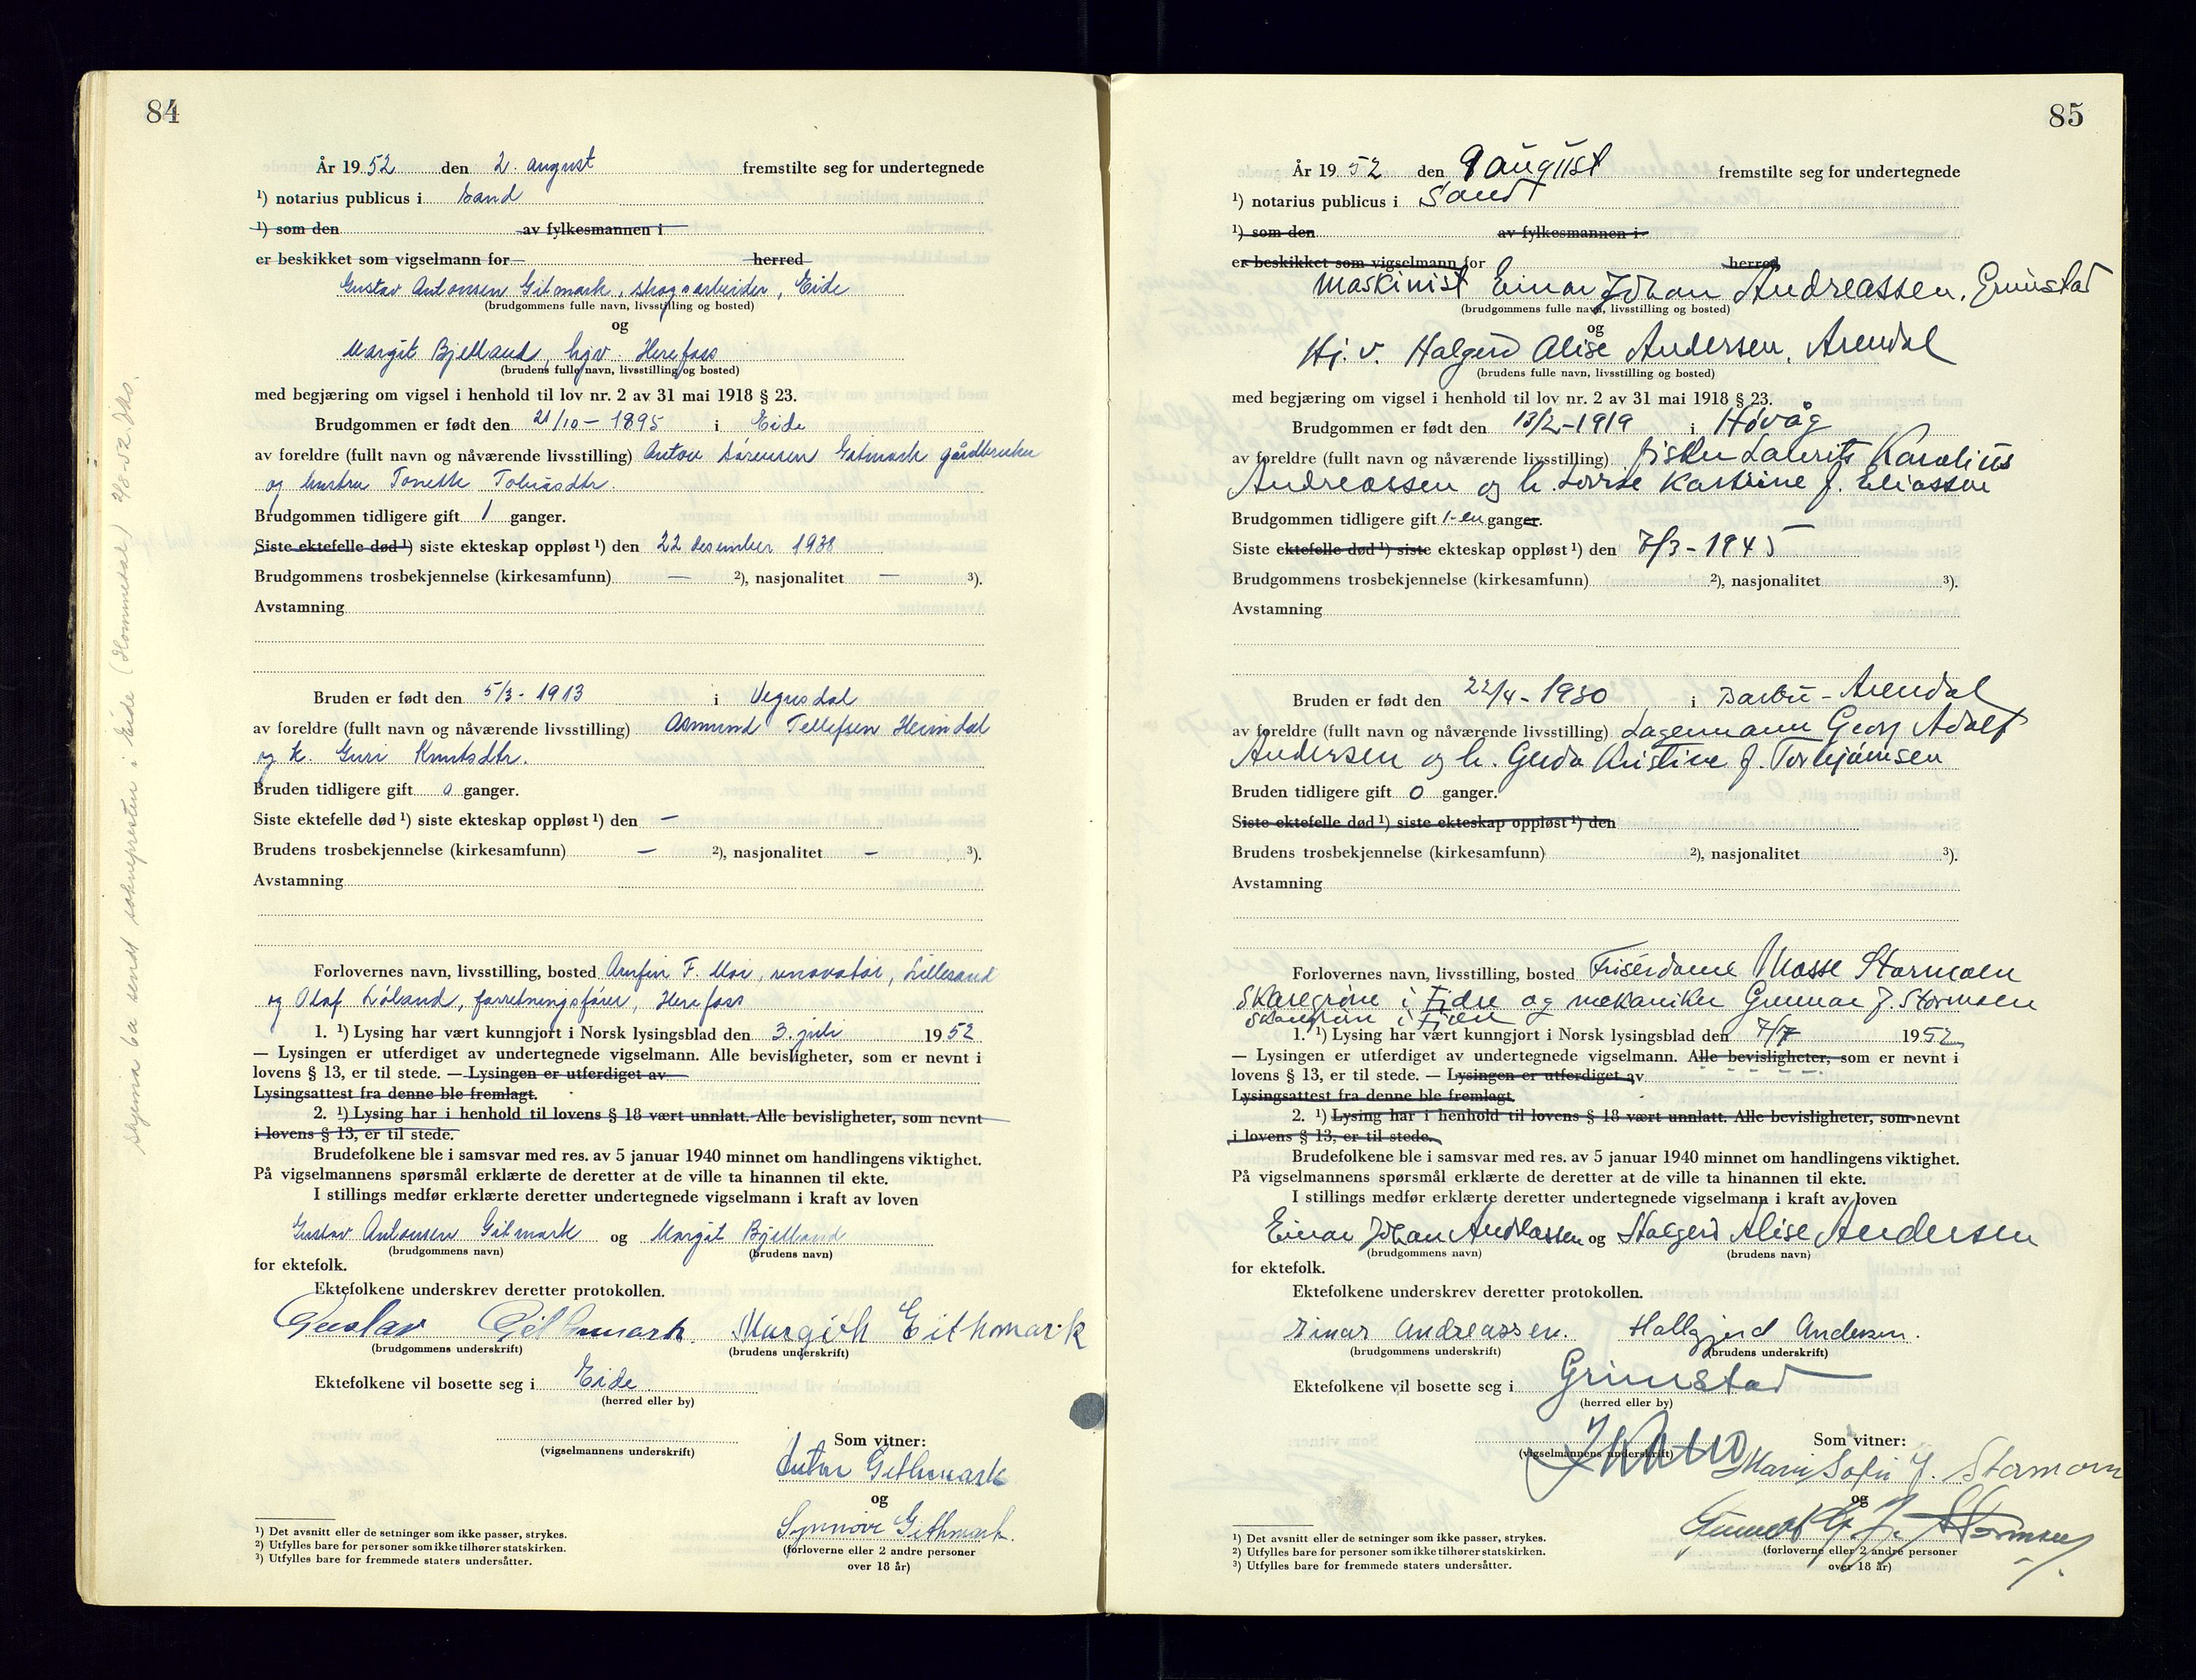 84
År 19 52 den 2. august fremstilte seg for undertegnede
¹) notarius publicus i Sand
¹) som den av fylkesmannen i
er beskikket som vigselmann for herred
Gustav Antonsen Gitmark, skogsarbeider, Eide
(brudgommens fulle navn, livsstilling og bosted)
og
Margit Bjelland, hjv. Herefoss
(brudens fulle navn, livsstilling og bosted)
med begjæring om vigsel i henhold til lov nr. 2 av 31 mai 1918 § 23.
Brudgommen er født den 21/10 - 1895 i Eide
av foreldre (fullt navn og nåværende livsstilling) Anton Sørensen Gitmark gårdbruker
og hustru Tonette Tobiasdtr.
Brudgommen tidligere gift 1 ganger.
Siste ektefelle død ¹) siste ekteskap oppløst ¹) den 22 desember 1938
Brudgommens trosbekjennelse (kirkesamfunn) — ²), nasjonalitet — ³).
Avstamning
Bruden er født den 5/3 - 1913 i Vegusdal
av foreldre (fullt navn og nåværende livsstilling) Asmund Tellefsen Heimdal
og h. Guri Knutsdtr.
Bruden tidligere gift 0 ganger.
Siste ektefelle død ¹) siste ekteskap oppløst ¹) den —
Brudens trosbekjennelse (kirkesamfunn) — ²), nasjonalitet — ³).
Avstamning
Forlovernes navn, livsstilling, bosted Arnfin F. Moi, renovatør, Lillesand
og Olaf Løland, forretningsfører, Herefoss
1. ¹) Lysing har vært kunngjort i Norsk lysingsblad den 3. juli 19 52
— Lysingen er utferdiget av undertegnede vigselmann. Alle bevisligheter, som er nevnt i
lovens § 13, er til stede. — Lysingen er utferdiget av
Lysingsattest fra denne ble fremlagt.
2. ¹) Lysing har i henhold til lovens § 18 vært unnlatt. Alle bevisligheter, som nevnt
i lovens § 13, er til stede.
Brudefolkene ble i samsvar med res. av 5 januar 1940 minnet om handlingens viktighet.
På vigselmannens spørsmål erklærte de deretter at de ville ta hinannen til ekte.
I stillings medfør erklærte deretter undertegnede vigselmann i kraft av loven
Gustav Antonsen Gitmark og Margit Bjelland
(brudgommens navn) (brudens navn)
for ektefolk.
Ektefolkene underskrev deretter protokollen.
Gustav Githmark. Margith Githmark
(brudgommens underskrift) (brudens underskrift)
Ektefolkene vil bosette seg i Eide
(herred eller by)
(vigselmannens underskrift)
Som vitner:
Anton Githmark
og
Synnøve Githmark.
(forloverne eller 2 andre personer
over 18 år)
¹) Det avsnitt eller de setninger som ikke passer, strykes.
²) Utfylles bare for personer som ikke tilhører statskirken.
³) Utfylles bare for fremmede staters undersåtter.
skjema 6a sendt soknepresten i Eide (Hommetal) 2/8-52.
85
År 19 52 den 9 august fremstilte seg for undertegnede
¹) notarius publicus i Sand
¹) som den av fylkesmannen i
er beskikket som vigselmann for herred
Maskinist Einar Johan Andreassen, Grimstad
(brudgommens fulle navn, livsstilling og bosted)
og
Hj. v. Halgerd Alise Andersen, Arendal
(brudens fulle navn, livsstilling og bosted)
med begjæring om vigsel i henhold til lov nr. 2 av 31 mai 1918 § 23.
Brudgommen er født den 13/2 - 1919 i Høvåg
av foreldre (fullt navn og nåværende livsstilling) fisker Laurits Karelius
Andreassen og h. Lovise Kastine f. Eliassen
Brudgommen tidligere gift 1-en ganger.
Siste ektefelle død ¹) siste ekteskap oppløst ¹) den 7/3 - 1945
Brudgommens trosbekjennelse (kirkesamfunn) ²), nasjonalitet ³).
Avstamning
Bruden er født den 22/4 - 1930 i Barbu - Arendal
av foreldre (fullt navn og nåværende livsstilling) Lagermann Georg Adolf
Andersen og h. Gerda Kristine f. Torbjørnsen
Bruden tidligere gift 0 ganger.
Siste ektefelle død ¹) siste ekteskap oppløst ¹) den
Brudens trosbekjennelse (kirkesamfunn) ²), nasjonalitet ³).
Avstamning
Forlovernes navn, livsstilling, bosted Frisérdame Mosse Stormoen
Skaregrøm i Fjære og mekaniker Gunnar J. Stormoen
Skaregrøm i Fjære
1. ¹) Lysing har vært kunngjort i Norsk lysingsblad den 7/7 19 52
— Lysingen er utferdiget av undertegnede vigselmann. Alle bevisligheter, som er nevnt i
lovens § 13, er til stede. — Lysingen er utferdiget av
Lysingsattest fra denne ble fremlagt.
2. ¹) Lysing har i henhold til lovens § 18 vært unnlatt. Alle bevisligheter, som nevnt
i lovens § 13, er til stede.
Brudefolkene ble i samsvar med res. av 5 januar 1940 minnet om handlingens viktighet.
På vigselmannens spørsmål erklærte de deretter at de ville ta hinannen til ekte.
I stillings medfør erklærte deretter undertegnede vigselmann i kraft av loven
Einar Johan Andreassen og Halgerd Alise Andersen
(brudgommens navn) (brudens navn)
for ektefolk.
Ektefolkene underskrev deretter protokollen.
Einar Andreassen. Hallgjerd Andersen.
(brudgommens underskrift) (brudens underskrift)
Ektefolkene vil bosette seg i Grimstad
(herred eller by)
(vigselmannens underskrift)
Som vitner:
Mari Sofie J. Stormoen
og
Gunnar J. Stormoen
(forloverne eller 2 andre personer
over 18 år)
¹) Det avsnitt eller de setninger som ikke passer, strykes.
²) Utfylles bare for personer som ikke tilhører statskirken.
³) Utfylles bare for fremmede staters undersåtter.